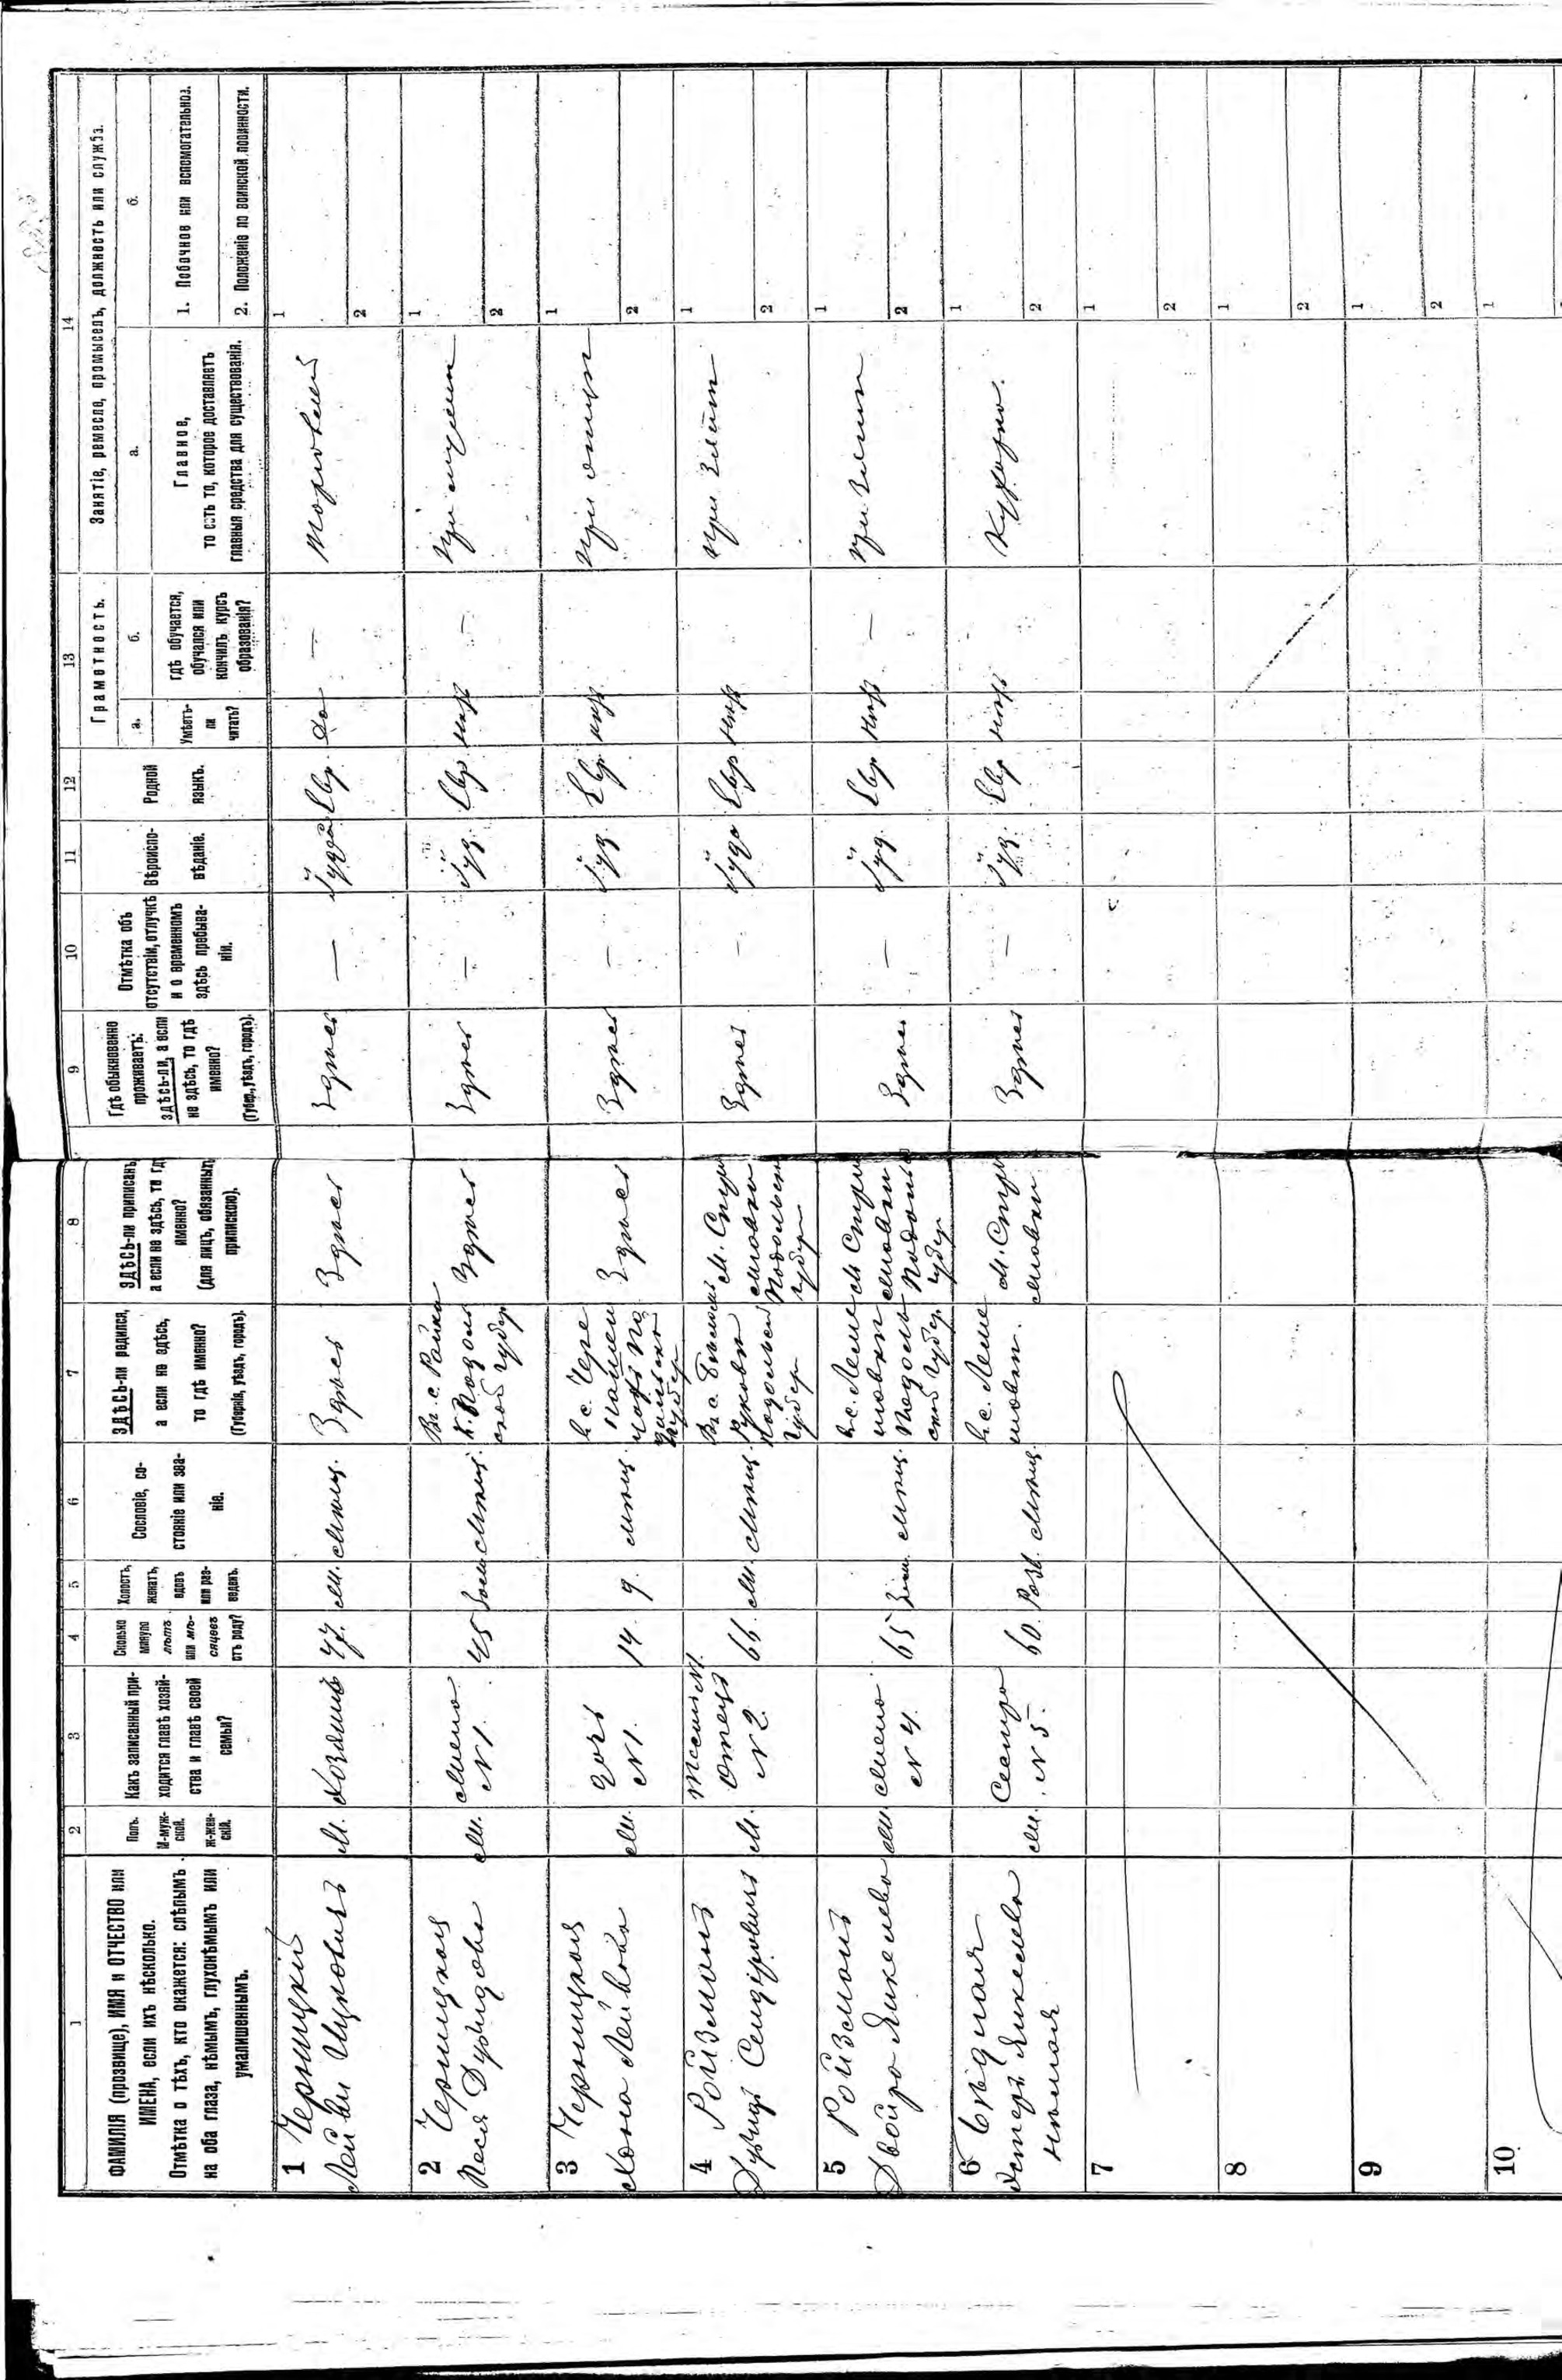 1
2
3
4
5
6
7
8
9
10
11
12
13
14
ФАМИЛІЯ (прозвище), ИМЯ и ОТЧЕСТВО или
ИМЕНА, если ихъ нѣсколько.
Отмѣтка о тѣхъ, кто окажется: слѣпымъ
на оба глаза, нѣмымъ, глухонѣмымъ или
умалишеннымъ.
Полъ.
М-муж-
ской.
Ж-жен-
скій.
Какъ записанный при-
ходится главѣ хозяй-
ства и главѣ своей
семьи?
Сколько
минуло
лѣтъ
или мѣ-
сяцевъ
отъ роду?
Холостъ,
женатъ,
вдовъ
или раз-
веденъ.
Сословіе, со-
стояніе или зва-
ніе.
ЗДѢСЬ-ли родился,
а если не здѣсь,
то гдѣ именно?
(Губернія, уѣздъ, городъ).
ЗДѢСЬ-ли приписанъ,
а если не здѣсь, то гдѣ
именно?
(для лицъ, обязанныхъ
припискою).
Гдѣ обыкновенно
проживаетъ:
здѣсь-ли, а если
не здѣсь, то гдѣ
именно?
(Губер., уѣздъ, городъ).
Отмѣтка объ
отсутствіи, отлучкѣ
и о временномъ
здѣсь пребыва-
ніи.
Вѣроиспо-
вѣданіе.
Родной
языкъ.
Грамотность.
а.
Умѣетъ-
ли
читать?
б.
гдѣ обучается,
обучался или
кончилъ курсъ
образованія?
Занятіе, ремесло, промыселъ, должность или служба.
а.
Главное,
то есть то, которое доставляетъ
главныя средства для существованія.
б.
1. Побочное или вспомогательное.
2. Положеніе по воинской повинности.
1 Черницкій
Лейви Ицковичъ
М.
Хозяинъ
47
Здѣсь
Здѣсь
Здѣсь
—
Іудей
Евр.
да
—
Торговецъ
1
2
2 Черницкая
Песя Дувидова
Жена
№1.
45
Мѣщ.
Подоль
ской губер
Здѣсь
Здѣсь
—
Іуд.
Евр
нѣтъ
—
1
2
3 Черницкая
Лейвова
дочь
№1.
14.
Мѣщ.
Здѣсь
Здѣсь
—
Іуд.
Евр
нѣтъ
при отцѣ
1
2
4 Ройзманъ
Дувидъ
М.
Отецъ
№2.
66.
Мѣщ.
Подольской
Губер
Подольской
губер
Здѣсь
—
Іуде
Евр
нѣтъ
при зятѣ
1
2
5 Ройзманъ
Двойра Янкелева
Жена
№4.
65
Мѣщ.
Подоль
ской Губер.
Подольс
губер
Здѣсь
—
Іуд.
Евр
нѣтъ
—
при зятѣ
1
2
6
Эстеръ Янкелева
Сестра
№5.
60.
Мѣщ.
Здѣсь
—
Іуд.
Евр
нѣтъ
Кухарка.
1
2
7
1
2
8
1
2
9
1
2
10
1